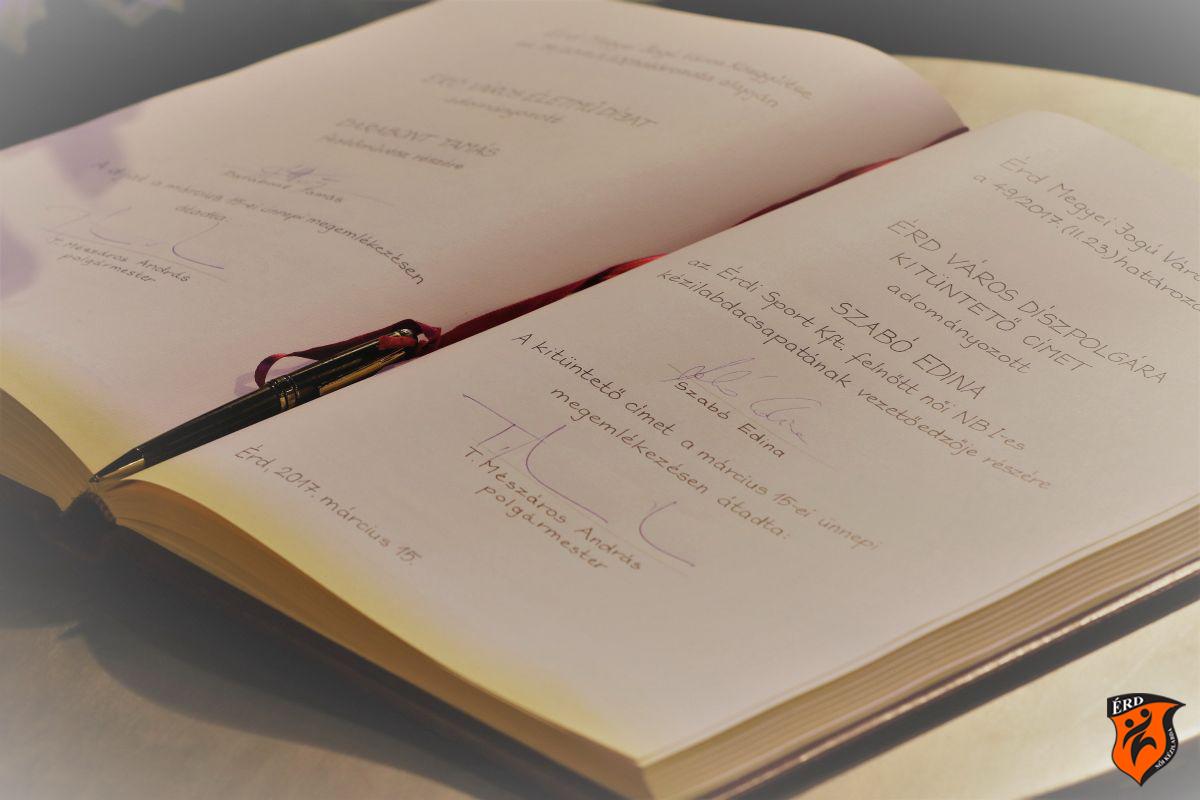 ÉRD VÁROS ÉLETMŰDÍJAT
adományozott
DARABONT TAMÁS
részére
Darabont Tamás
A díjat a március 15-ei ünnepi megemlékezésen
átadta:
T. Mészáros András
polgármester
Érd Megyei Jogú
a 49/2017.(II.23.)
ÉRD VÁROS DÍSZPOLGÁRA
KITÜNTETŐ CÍMET
adományozott
SZABÓ EDINA
az Érdi Sport Kft. felnőtt női NB I-es
kézilabdacsapatának vezetőedzője részére
Szabó Edina
A kitüntető címet a március 15-ei ünnepi
megemlékezésen átadta:
T. Mészáros András
polgármester
Érd, 2017. március 15.
ÉRD
NŐI KÉZILABDA